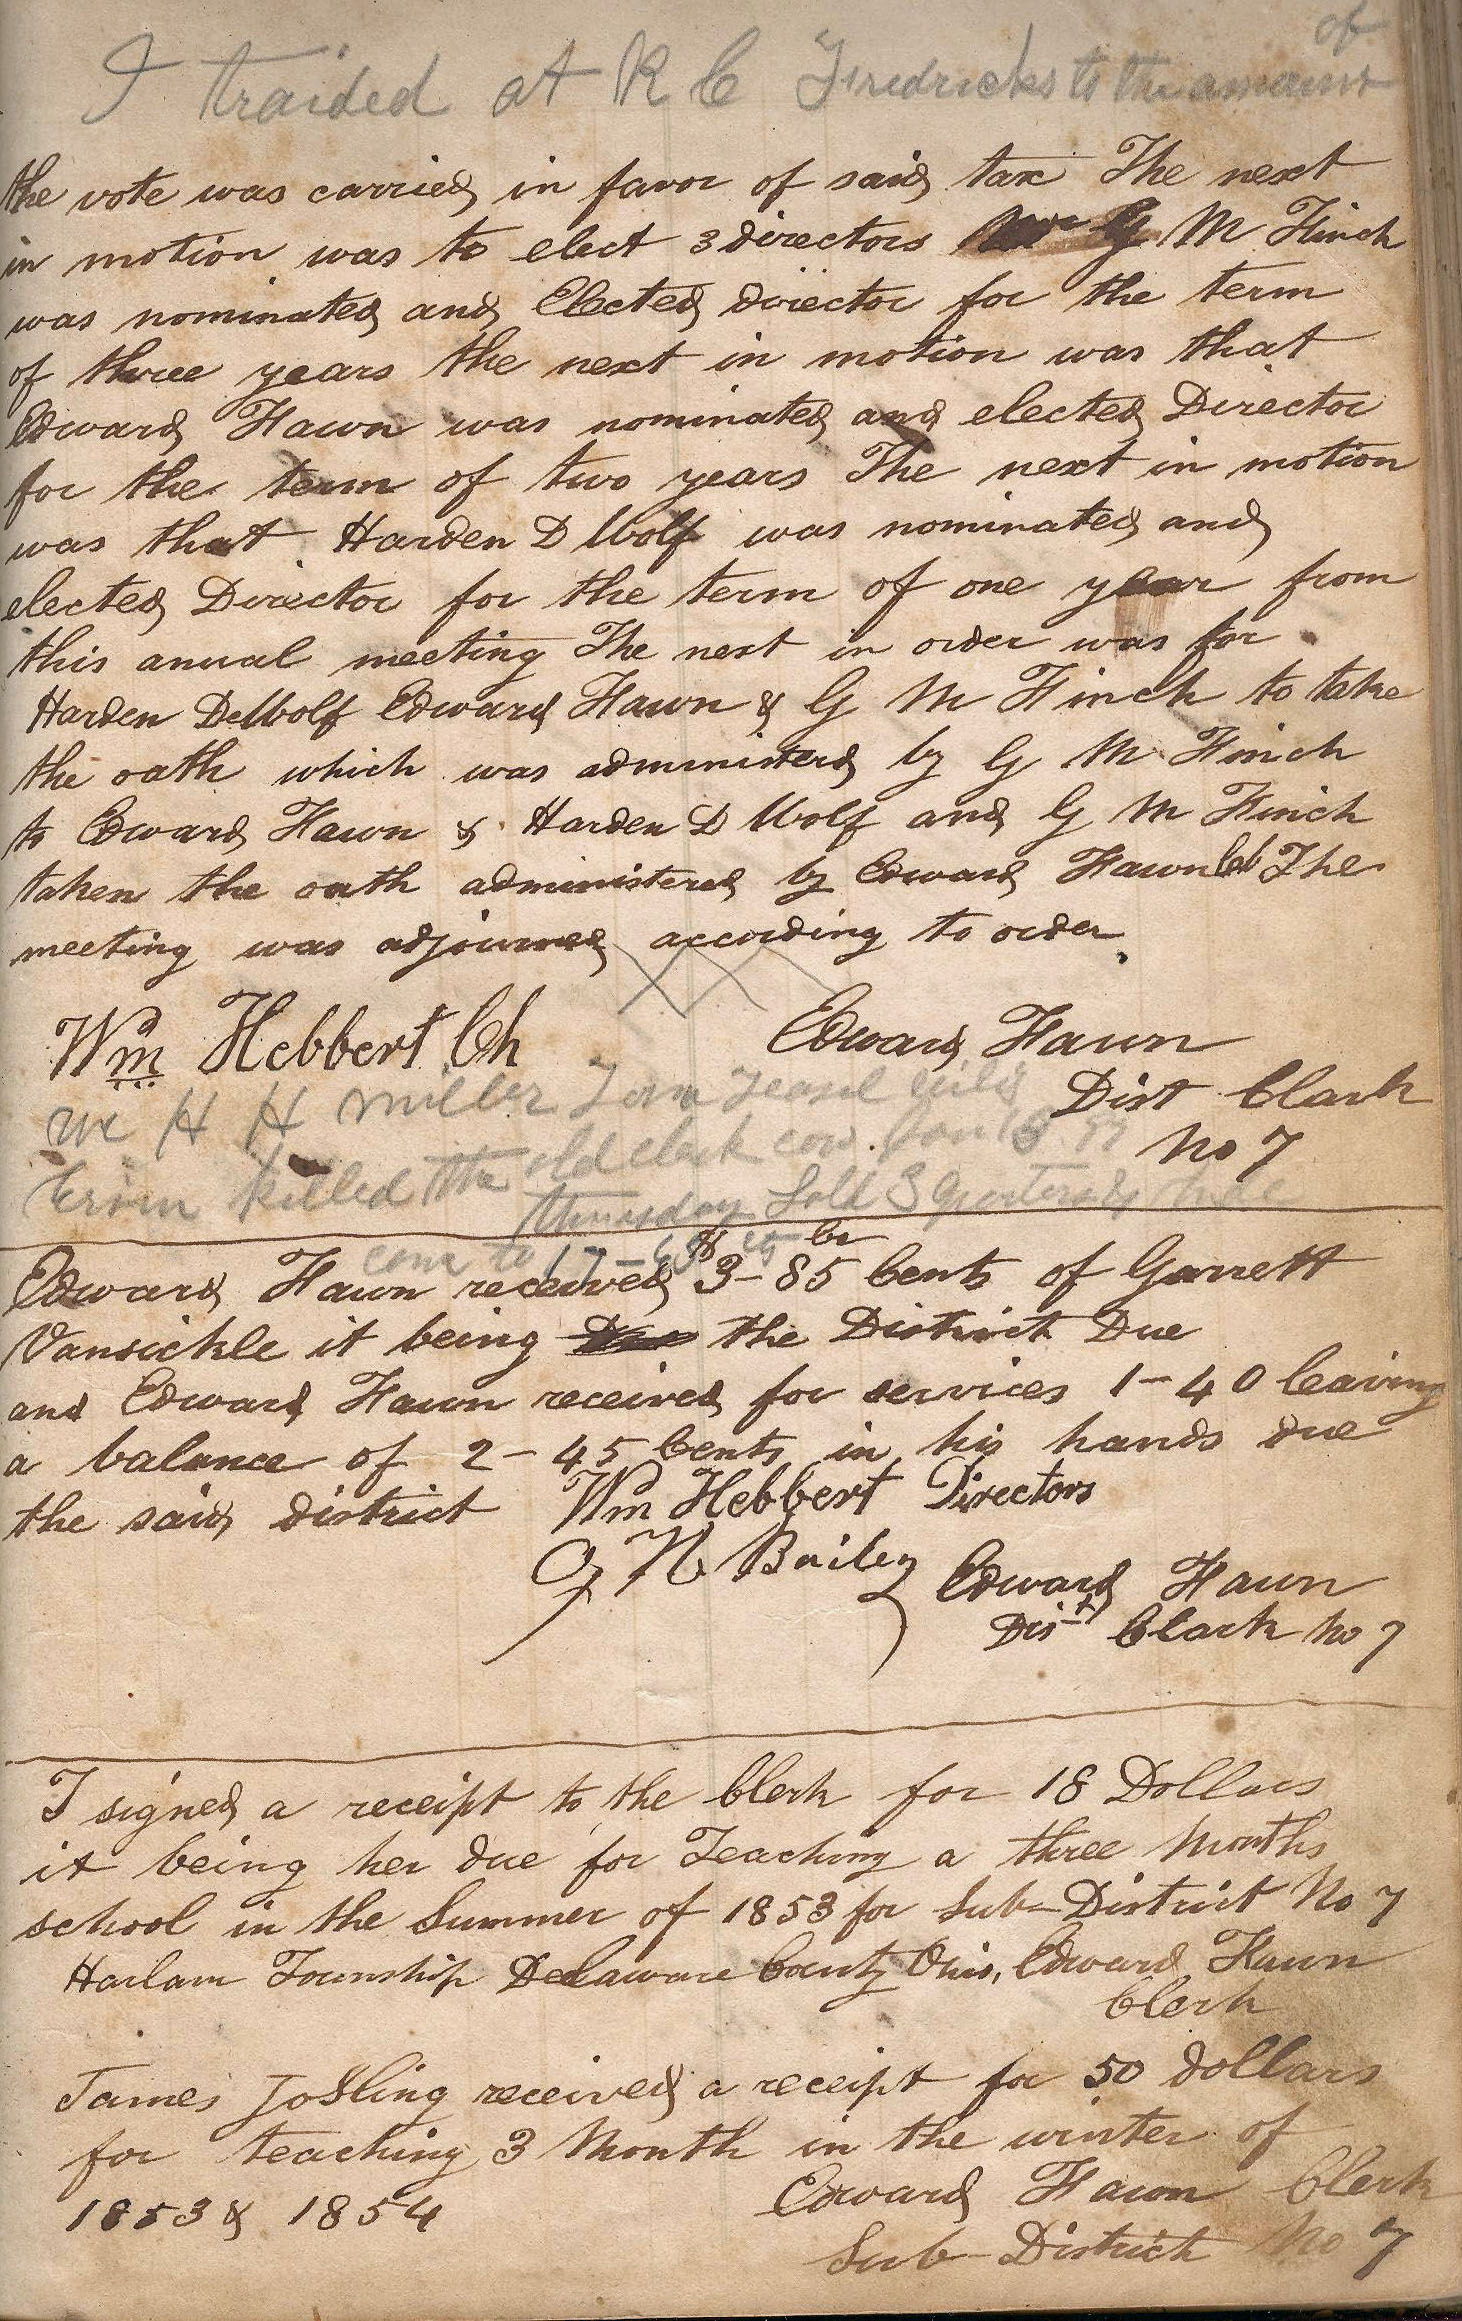 of
I traided at R C Fredricks to the amount
the vote was carried in favor of said tax The next
in motion was to elect 3 directors G M Finch
was nominated and Elected director for the term
of three years the next in motion was that
Edward Hawn was nominated and elected Director
for the term of two years The next in motion
was that Harden D Wolf was nominated and
elected Director for the term of one year from
this anual meeting The next in order was for
Harden DeWolf Edward Hawn & G M Finch to take
the oath which was administerd by G M Finch
to Edward Hawn & Harden D Wolf and G M Finch
taken the oath administered by Edward Hawn Cl The
meeting was adjourned according to order
Wm Hebbert Ch
Edward Hawn
Dist Clark
No 7
we H H Miller Tom
killed the old black cow Jan
thursday Sold 3 quarters & hide
come to 17
Edward Hawn received $3-85 Cents of Garrett
Vansickle it being the District Due
and Edward Hawn received for services 1-40 leaving
a balance of 2-45 Cents in his hands due
the said district Wm Hebbert Directors
G N Bailey
Edward Hawn
Dist Clark No 7
I signed a receipt to the Clerk for 18 Dollars
it being her due for Teaching a three Months
school in the Summer of 1853 for Sub-District No 7
Harlam Township Delaware County Ohio, Edward Hawn
Clerk
James Josling received a receipt for 50 dollars
for teaching 3 Month in the winter of
1853 & 1854
Edward Hawn Clerk
Sub-District No 7